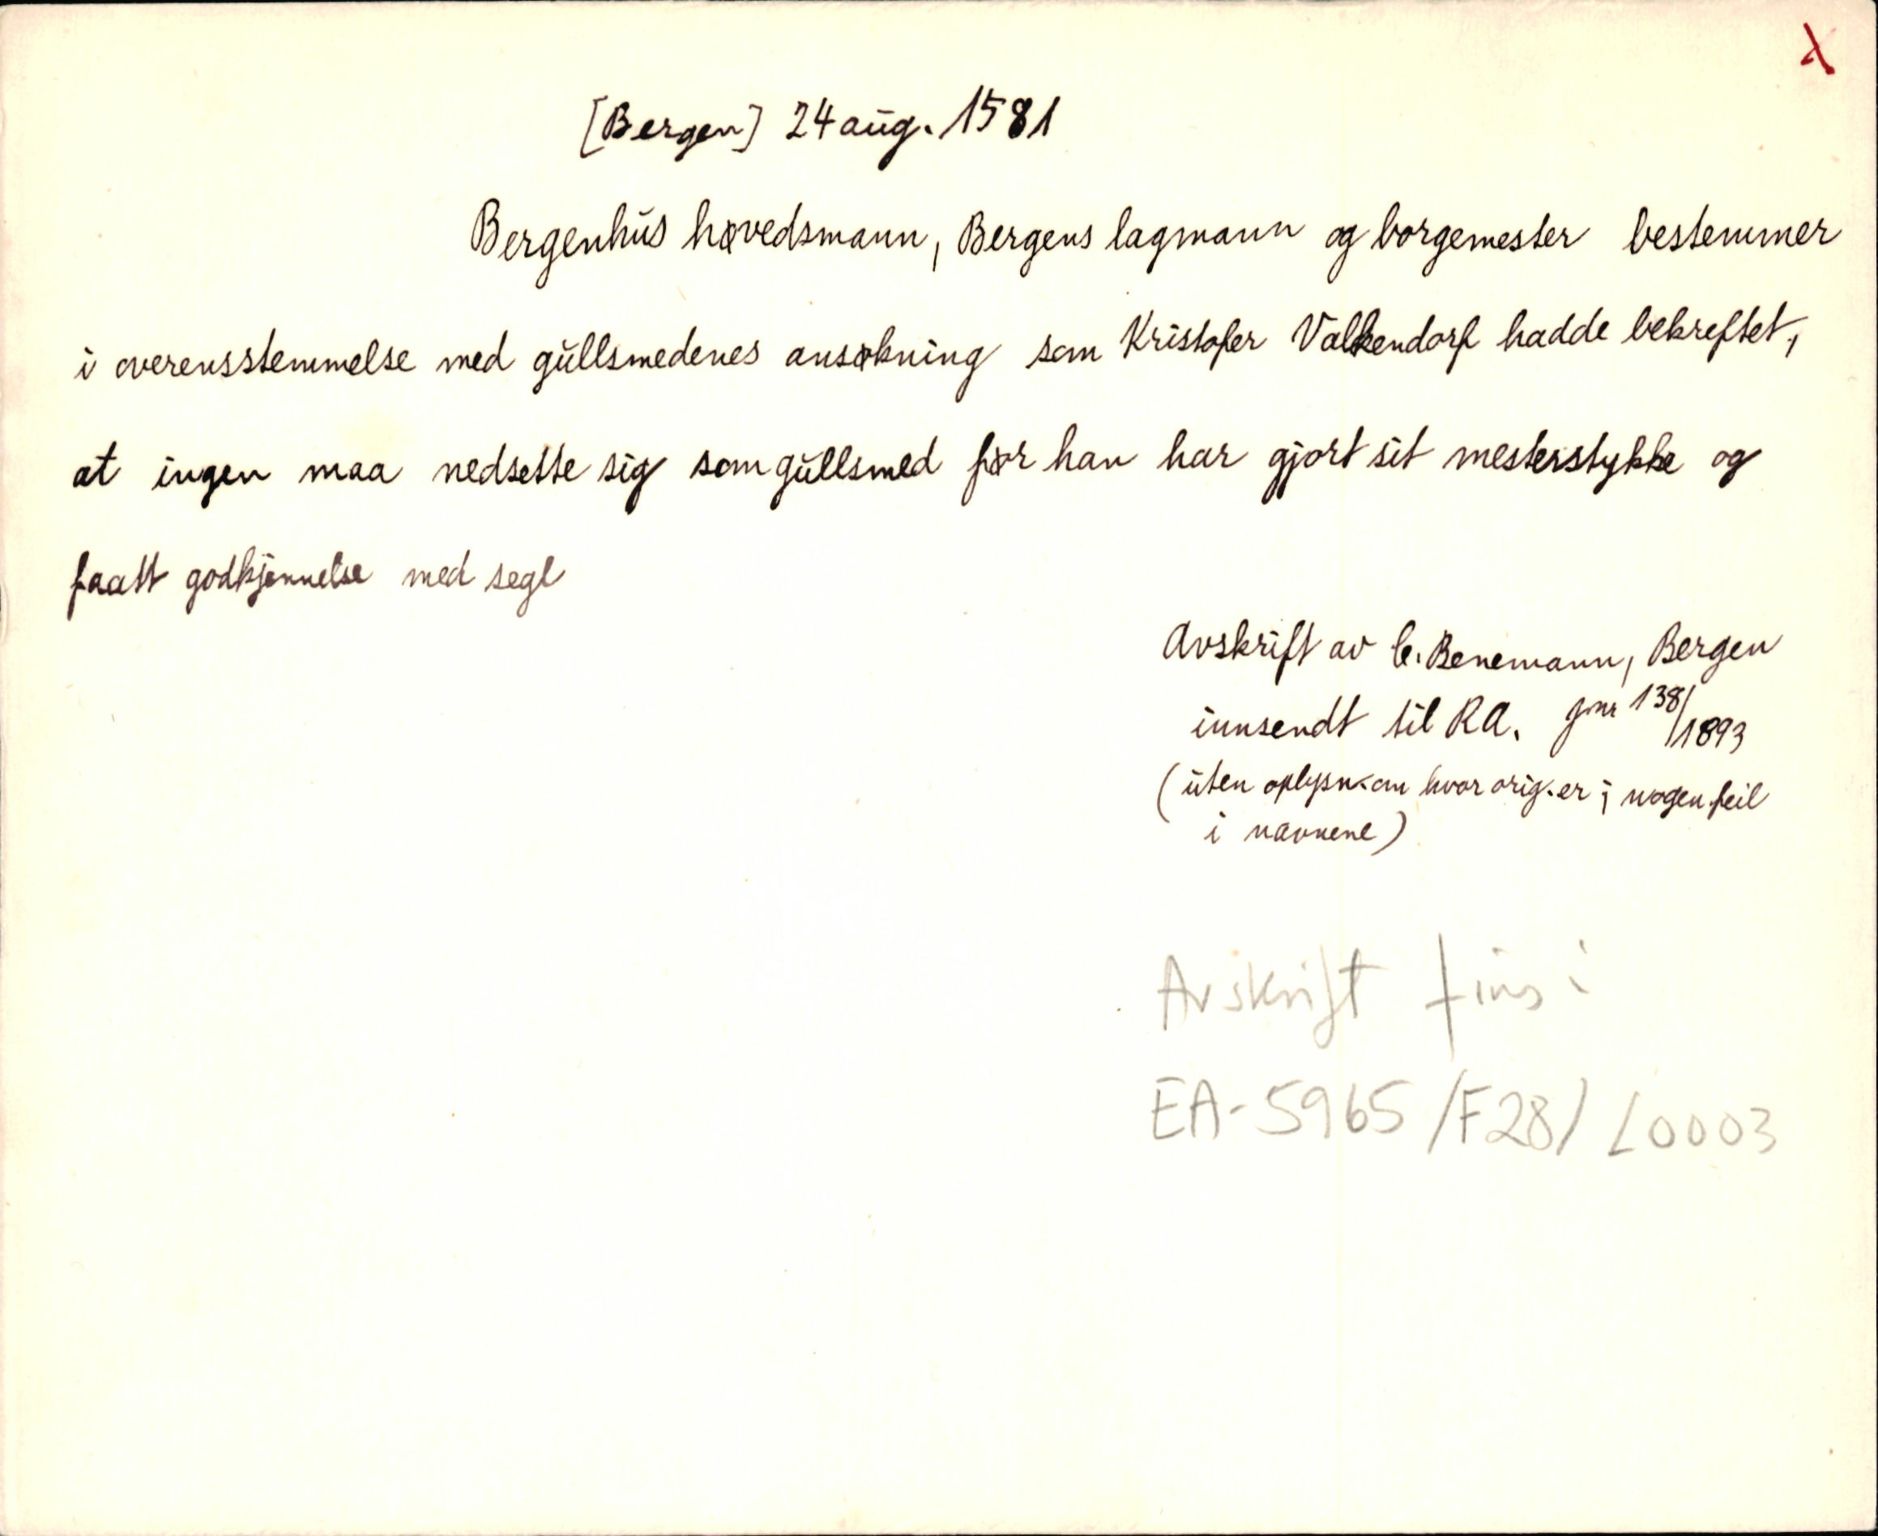 x
[Bergen] 24 aug. 1581
Bergenhus høvedsmann, Bergens lagmann og borgemester bestemmer
i overensstemmelse med gullsmedenes ansøkning som Kristofer Valkendorf hadde bekreftet,
at ingen maa nedsette sig som gullsmed før han har gjort sit mesterstykke og
faatt godkjennelse med segl
Avskrift av C. Benemann, Bergen
innsendt til RA. jnr 138/1893
(uten oplysn. om hvor orig. er; nogen feil
i navnene)
Avskrift fins i
EA-5965/F28/L0003